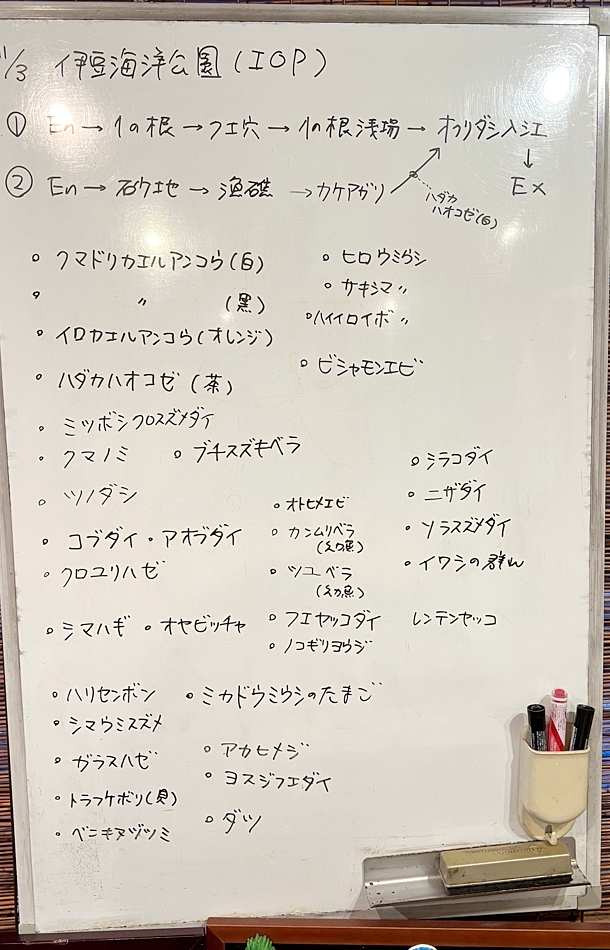 1/3 伊豆海洋公園(IOP)
① En→1の根→フエ穴→1の根浅場→オクリダシ入江
↓
Ex
② En→石ウエセ→漁礁→カケアガリ
ハダカ
ハオコゼ(白)
○ クマドリカエルアンコウ(白)
○ 〃 (黒)
○ イロカエルアンコウ(オレンジ)
○ ハダカハオコゼ(茶)
○ ヒロウミウシ
○ サキシマ〃
○ ハイイロイボ〃
○ ビシャモンエビ
○ ミツボシクロスズメダイ
○ クマノミ ○ ブチススキベラ
○ ツノダシ
○ コブダイ・アオブダイ
○ クロユリハゼ
○ シマハギ ○ オヤビッチャ
○ オトヒメエビ
○ カンムリベラ
(幼魚)
○ ツユベラ
(幼魚)
○ フエヤッコダイ
○ ノコギリヨウジ
○ シラコダイ
○ ニザダイ
○ ソラスズメダイ
○ イワシの群れ
レンテンヤッコ
○ ハリセンボン ○ ミカドウミウシのたまご
○ シマウミスズメ
○ ガラスハゼ
○ トラフケボリ(貝)
○ ベニキヌヅツミ
○ アカヒメジ
○ ヨスジフエダイ
○ ダツ